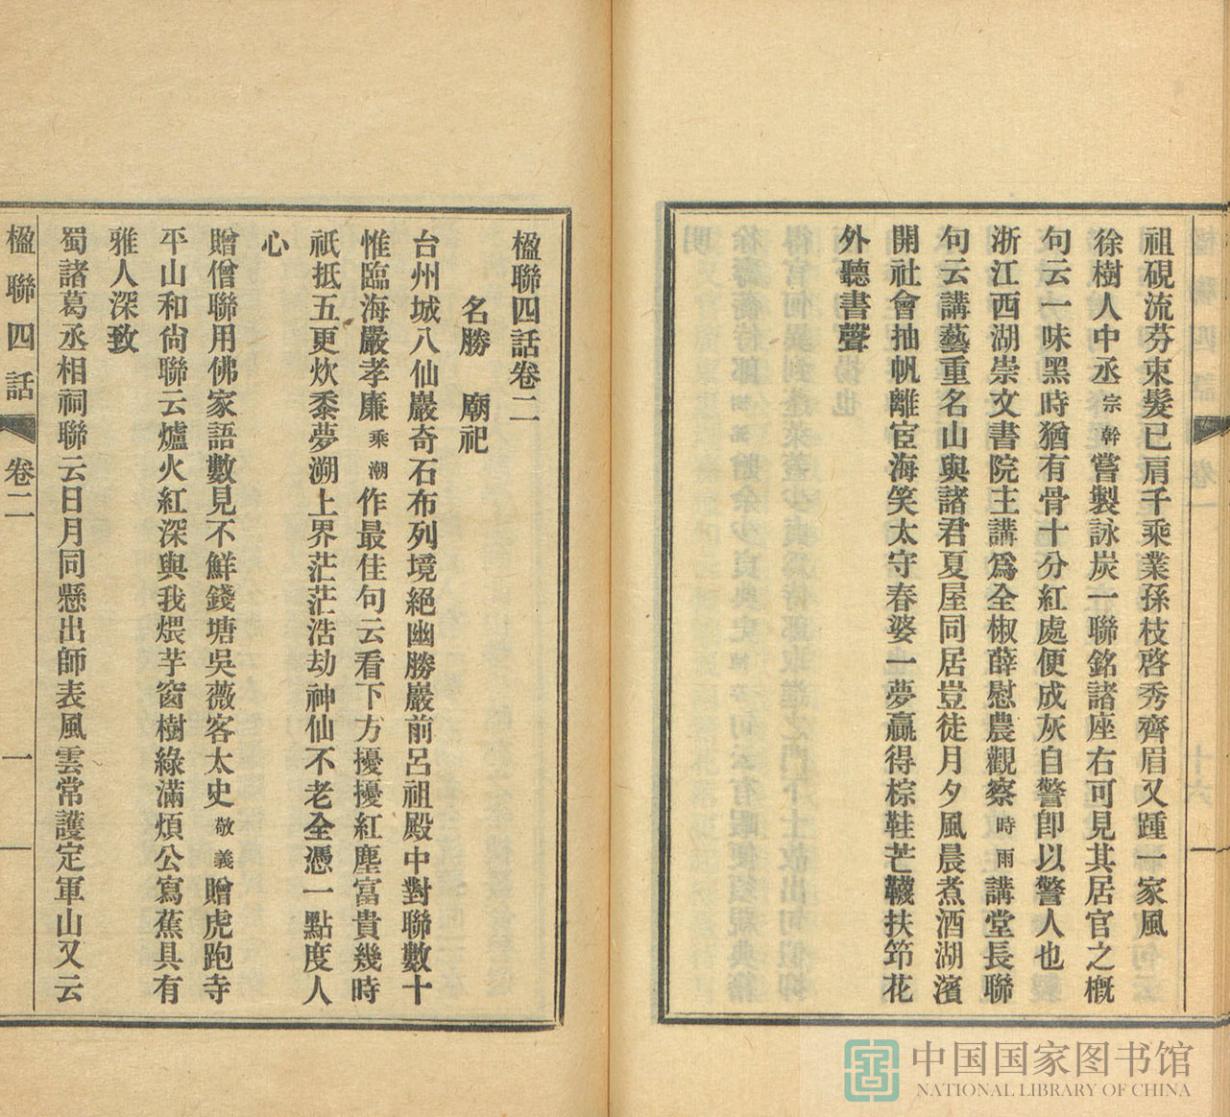 祖硯流芬束髮已肩千乘業孫枝啓秀齊眉又踵一家風
徐樹人中丞宗幹嘗製詠炭一聯銘諸座右可見其居官之概
句云一味黑時猶有骨十分紅處便成灰自警卽以警人也
浙江西湖崇文書院主講爲全椒薛慰農觀察時雨講堂長聯
句云講藝重名山與諸君夏屋同居豈徒月夕風晨煮酒湖濱
開社會抽帆離宦海笑太守春婆一夢贏得棕鞋芒韈扶笻花
外聽書聲
楹聯四話卷二
名勝 廟祀
台州城八仙巖奇石布列境絕幽勝巖前呂祖殿中對聯數十
惟臨海嚴孝廉乘潮作最佳句云看下方擾擾紅塵富貴幾時
祇抵五更炊黍夢溯上界茫茫浩劫神仙不老全憑一點度人
心
贈僧聯用佛家語數見不鮮錢塘吳薇客太史敬羲贈虎跑寺
平山和尙聯云爐火紅深與我煨芋窗樹綠滿煩公寫蕉具有
雅人深致
蜀諸葛丞相祠聯云日月同懸出師表風雲常護定軍山又云
楹聯四話 卷二 一
中国国家图书馆
NATIONAL LIBRARY OF CHINA